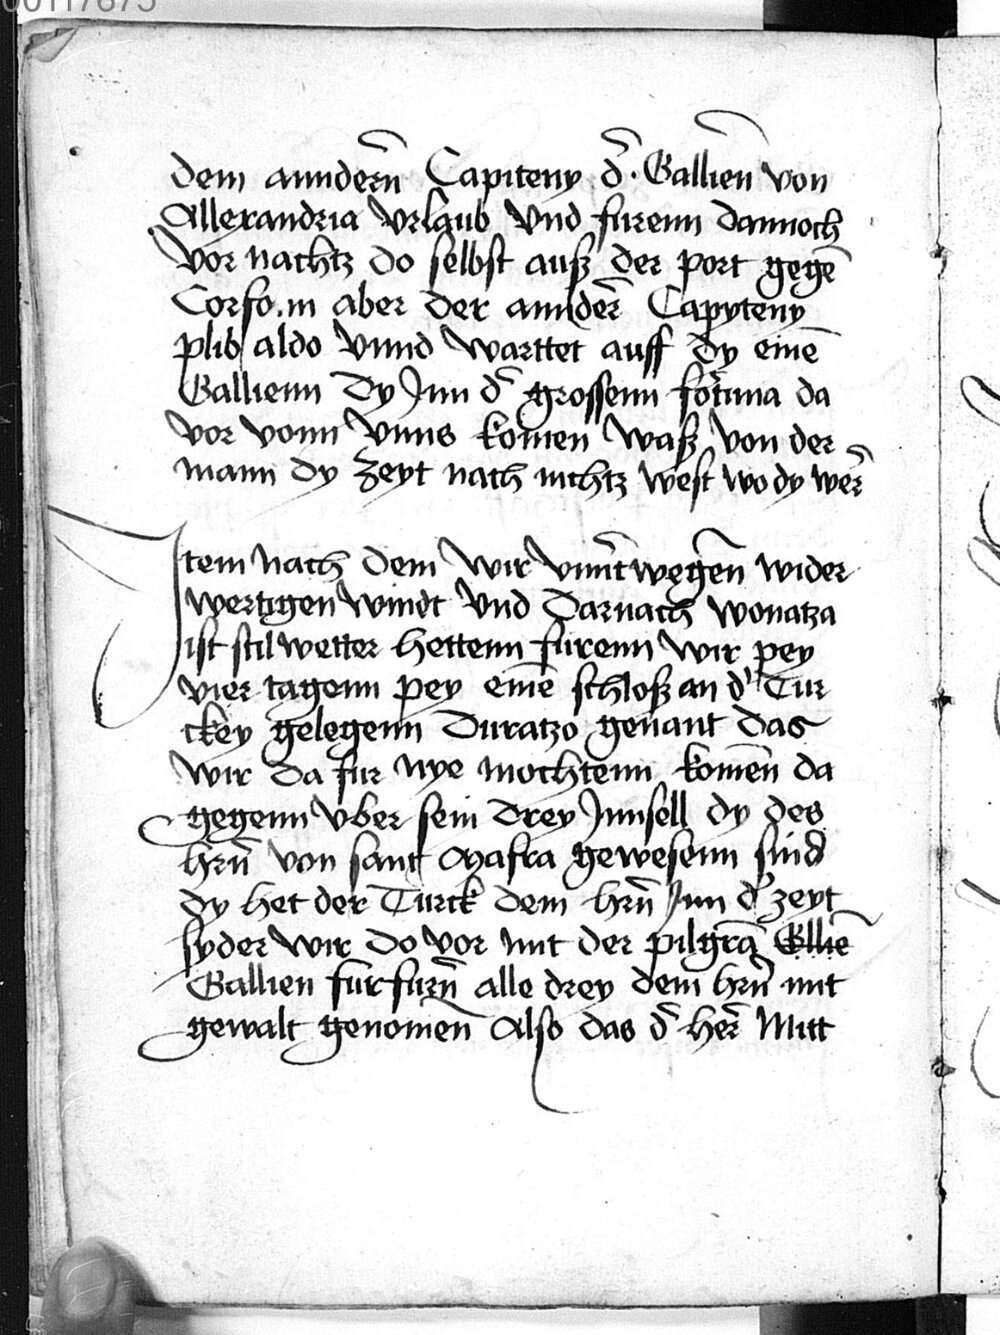 00117875
dem anndern̄ Capiteny d̄ · Gallien von
Allexandria vrlaub vnd furenn dannoch
vor nachtz do selbst auß der port gegē
Corfo. in aber der annder̄ Capyteny
plib aldo vnnd warttet auff dy einē
Gallienn dy Jnn d̄ grossenn fortūna da
vor vonn vnns komen waß von der
mann dy zeyt nach nichtz west wo dy wer̄
Jtem nach dem wir vnnt̄wegen̄ wider
wertigen windt vnd darnach wonatza
ist stil wetter hettenn furenn wir pey
vier tagenn pey einē schloß an d' Tur
ckey gelegenn Duratzo genant das
wir da fur nye mochtenn komen̄ da
gegenn vber sein drey Jnnsell dy des
hrn̄ von sant Mafra gewesenn sind
dy het der Turck dem hrn̄ Jnn d' zeyt
syder wir do vor mit der pilgrā Ellie
Gallien fur furn̄ alle drey dem hrn̄ mit
gewalt genomen̄ Also das d̄ her̄ Mitt